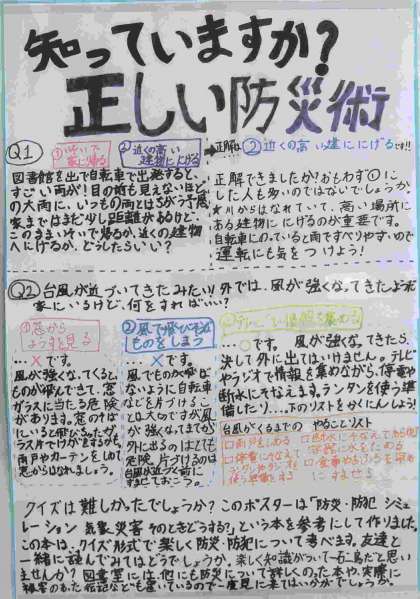 知っていますか?
正しい防災術
Q1
①急いで家に帰る
②近くの高い建物ににげる
→正解は②近くの高い建物ににげるです!!
図書館を出て自転車で出発すると、
すごい雨が!目の前も見えないほど
の大雨に、いつもの雨とはちがう予感。
家まではまだ少し距離があるけど、
このままいそいで帰るか、近くの建物
へにげるか、どうしたらいい?
正解できましたか?おもわず①に
した人も多いのではないでしょうか。
★川からはなれていて、高い場所に
ある建物ににげるのが重要です。
自転車にのっていると雨ですべりやすいので
運転にも気をつけよう!
Q2 台風が近づいてきたみたい!!外では、風が強くなってきたようだ
家にいるけど、何をすればいい?
①窓からようすを見る
②風で飛びそうなものをしまう
③テレビで情報を集める
…×です。
風が強くなってくると
ものが飛んできて、窓
ガラスに当たる危険
があります。窓のそば
にいると飛びちったガ
ラス片でけがをするかも。
雨戸やカーテンをしめて
窓からはなれましょう。
…×です。
風でものが飛ば
ないように自転車
などを片づけるこ
とは大切ですが風
が強くなってきてから
外に出るのはとても
危険。片づけるのは
台風が近づく前に
すませておこう。
…○です。風が強くなってきたら、
決して外に出てはいけません。テレビ
やラジオで情報を集めながら、停電や
断水にそなえます。ランタンを使う準
備したり…下のリストをかくにんしよう!
台風がくるまでの やることリスト
□雨戸をしめる
□停電にそなえて
クイズは難しかったでしょうか?このポスターは「防災・防犯シミュ
レーション 気象災害 そのときどうする?」という本を参考にして作りました。
この本は、クイズ形式で楽しく防災・防犯について考べます。友達と
一緒に読んでみてはどうでしょうか。楽しく知識がついて一石二鳥だと思い
ませんか?図書室には、他にも防災について詳しくのった本や、実際に
被害のあった伝記なども置いているので一度見に来てはいかがでしょうか。